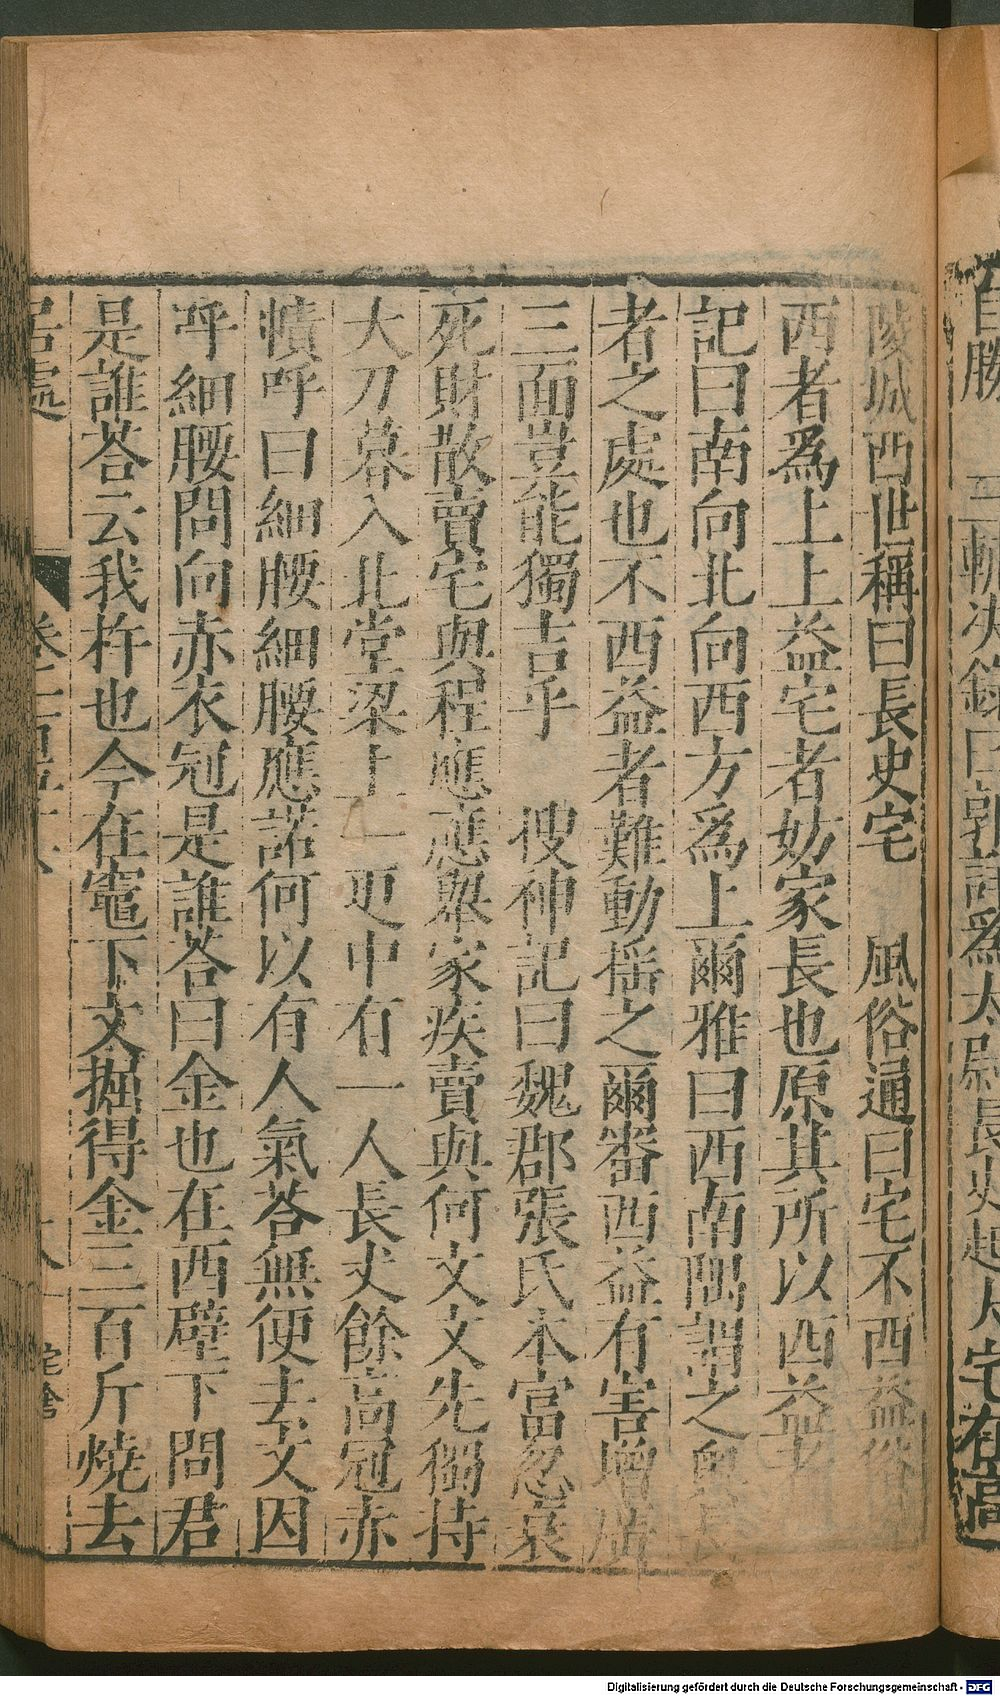 陵城西世稱曰長史宅　風俗通曰宅不西益俗
西者爲上上益宅者妨家長也原其所以西益
記曰南向北向西方爲上爾雅曰西南隅謂之
者之處也不西益者難動搖之爾審西益有害增廣
三面豈能獨吉乎　搜神記曰魏郡張氏本富忽衰
死財散賣宅與程應應舉家疾賣與何文文先獨持
大刀暮入北堂梁上一更中有一人長丈餘高冠赤
幘呼曰細腰細腰應諾何以有人氣荅無便去文因
呼細腰問向赤衣冠是誰荅曰金也在西壁下問君
是誰荅云我杵也今在竈下文掘得金三百斤燒去
居處
宅舍
Digitalisierung gefördert durch die Deutsche Forschungsgemeinschaft - DFG